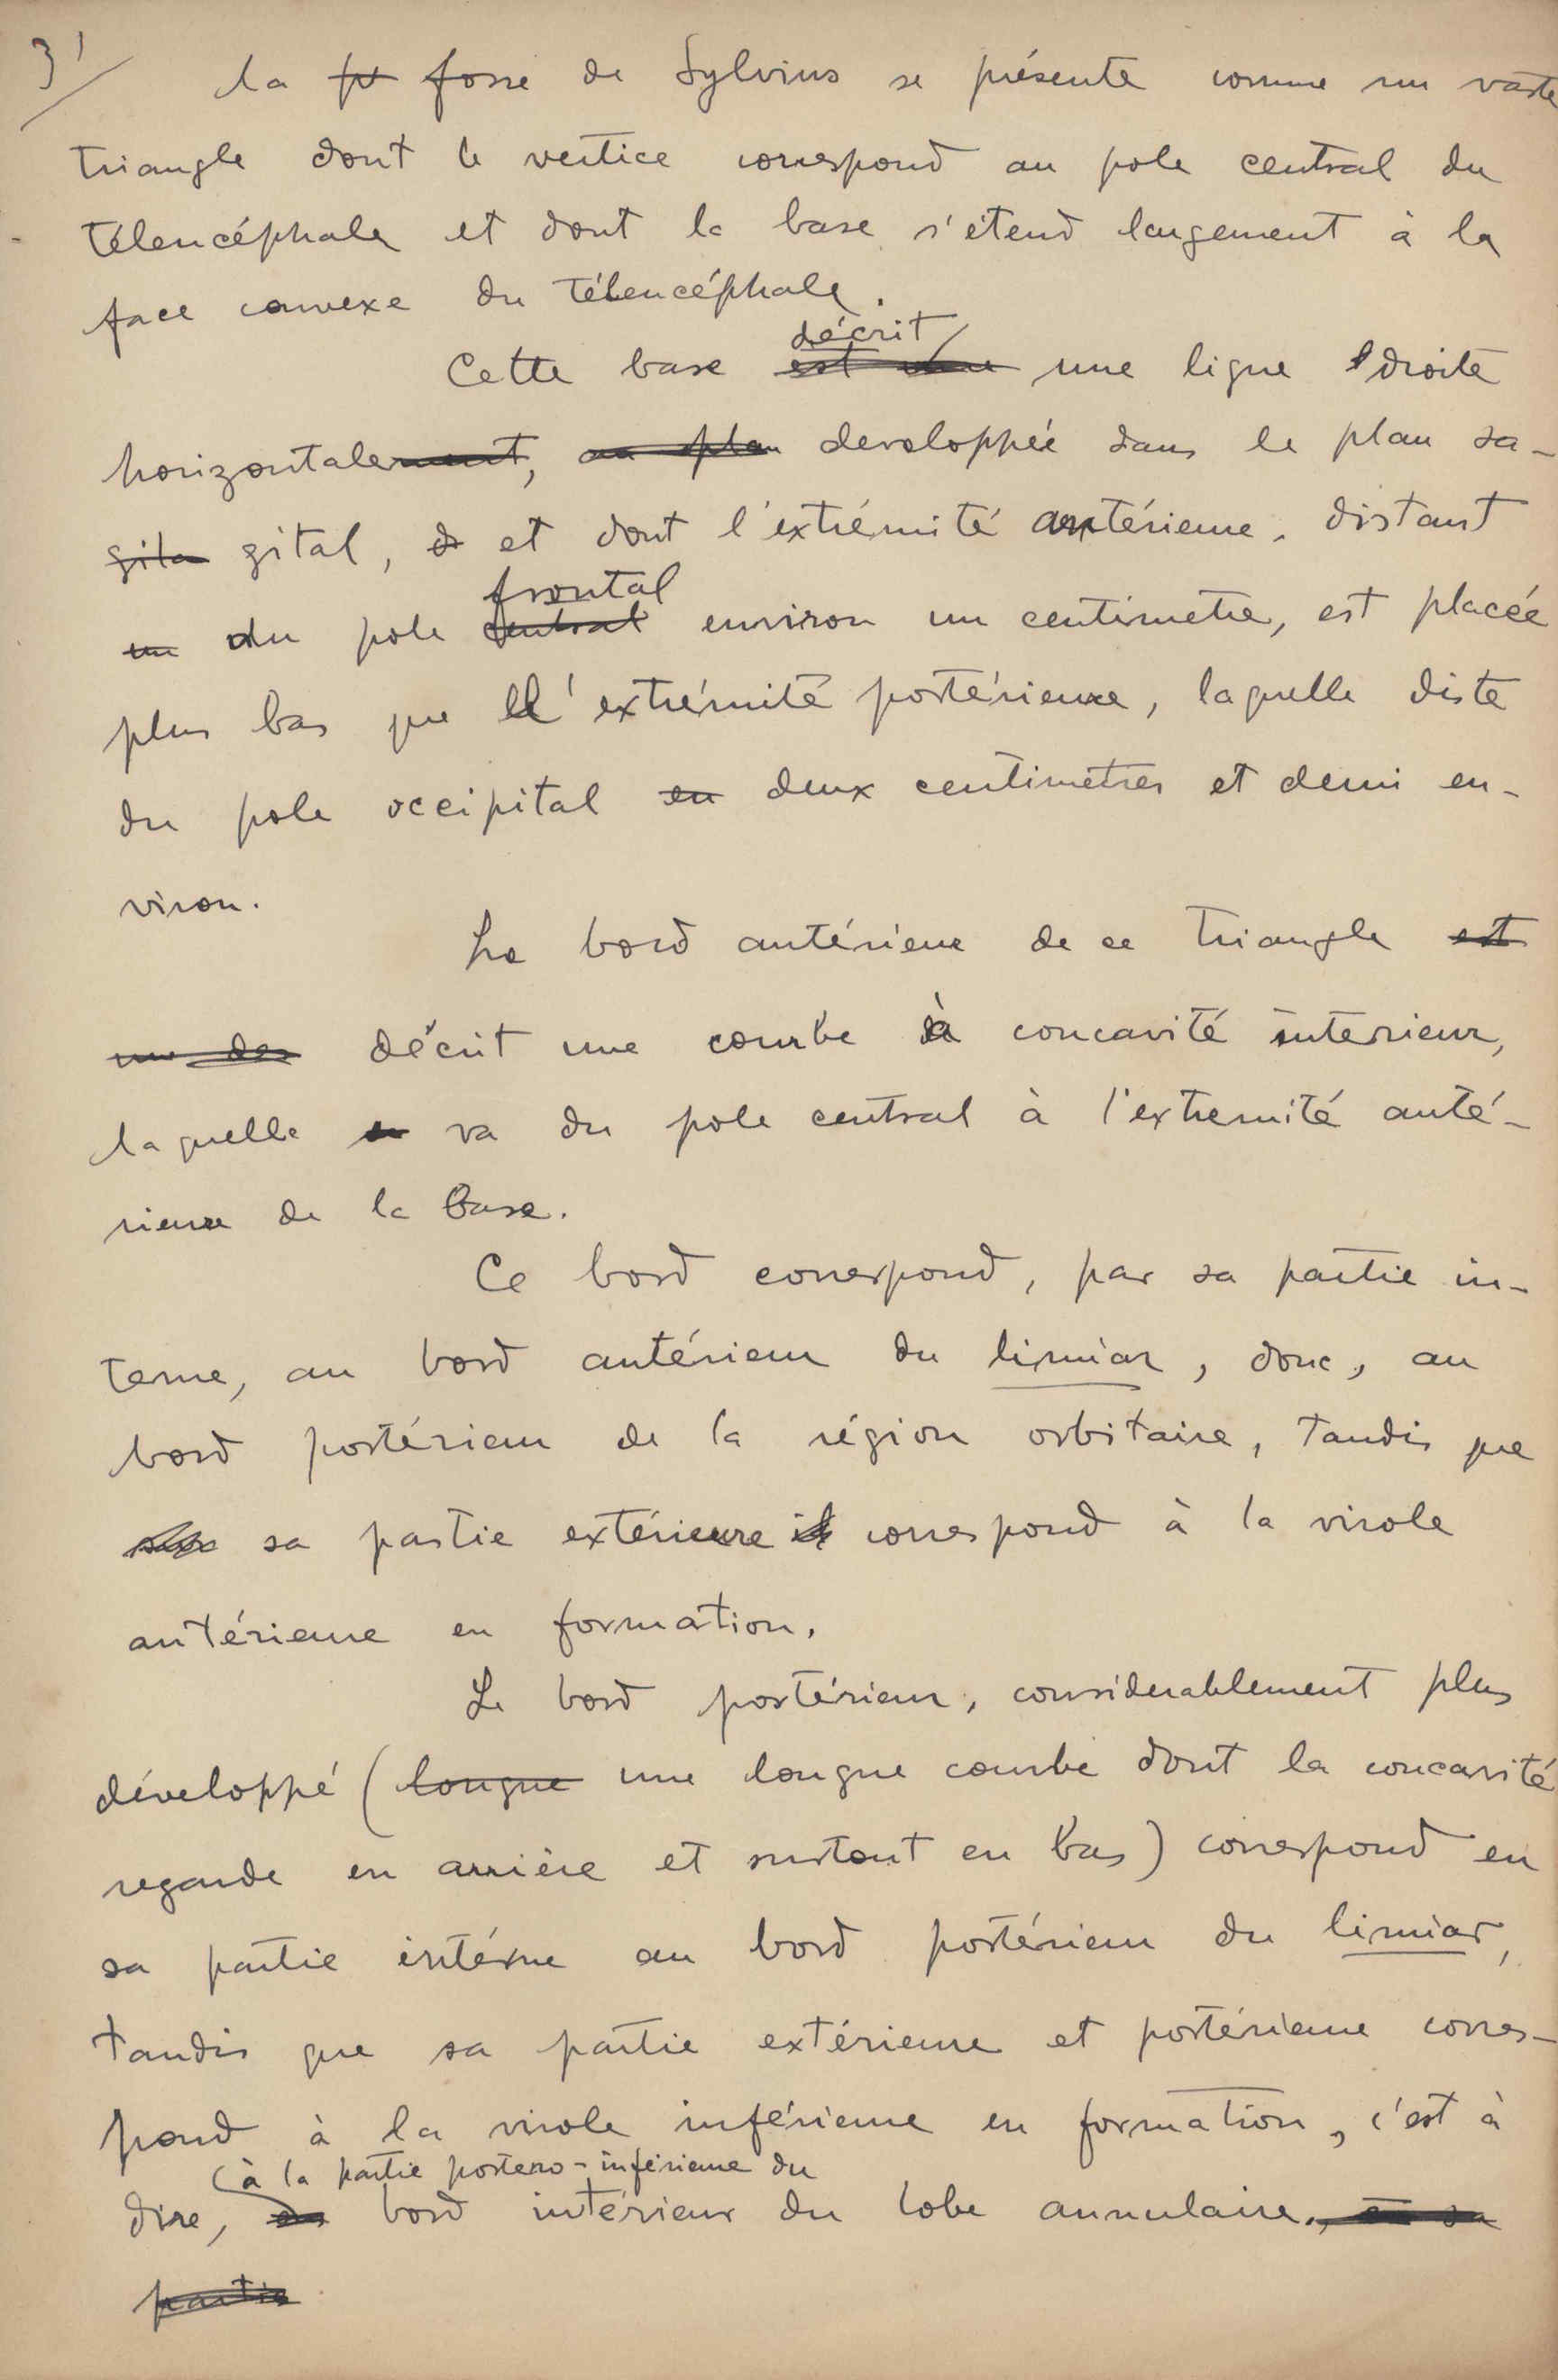 3'/
La fosse de Sylvius se présente comme un vaste
triangle dont le vertice correspond au pole central du
télencéphale et dont la base s'étend largement à la
face convexe du télencéphale.
décrit
Cette base est une ligne droite
horizontalement, au plan developpée dans le plan sa-
gita gital, et dont l'extrémité antérieure, distant
un du pole
frontal
central environ un centimetre, est placée
plus bas que l'extrémité postérieure, laquelle diste
du pole occipital en deux centimètres et demi en-
viron.
Le bord antérieur de ce triangle est
un des décrit une courbe à concavité interieur,
laquelle va du pole central à l'extremité anté-
rieure de la base.
Ce bord correspond, par sa partie in-
terne, au bord antérieur du limiar, donc, au
bord postérieur de la région orbitaire, tandis que
sa partie extérieure il correspond à la virole
antérieure en formation.
Le bord postérieur, considerablement plus
développé (longue une longue courbe dont la concavité
regarde en arrière et surtout en bas) correspond en
sa partie intérne au bord postérieur du limiar,
tandis que sa partie extérieure et postérieure corres-
pond à la virole inférieure en formation, c'est à
(à la partie postero-inférieure du
dire, bord intérieur du lobe annulaire, en sa
partie